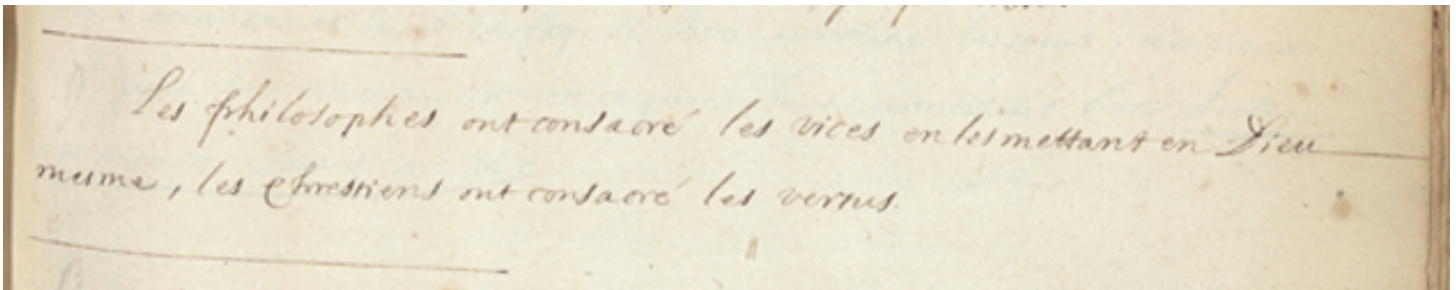 Les philosophes ont consacré les vices en les mettant en Dieu
mesme, les Chrestiens ont consacré les vertus.